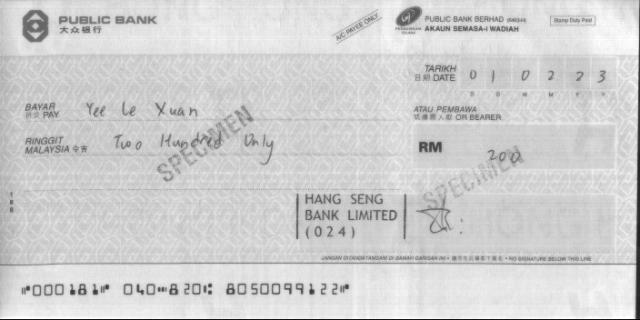 PUBLIC BANK
大众银行
A/C PAYEE ONLY
PUBLIC BANK BERHAD (6463-H)
AKAUN SEMASA-i WADIAH
Stamp Duty Paid
TARIKH
日期 DATE 0 1 0 2 2 3
D D M M Y Y
BAYAR
PAY Yee Le Xuan
ATAU PEMBAWA
OR BEARER
RINGGIT
MALAYSIA Two Hundred Only
RM 200
SPECIMEN
SPECIMEN
HANG SENG
BANK LIMITED
(024)
JANGAN DITANDATANGANI DI BAWAH GARISAN INI • NO SIGNATURE BELOW THIS LINE
⑈000181⑈ 040⑉820⑆ 8050099122⑈